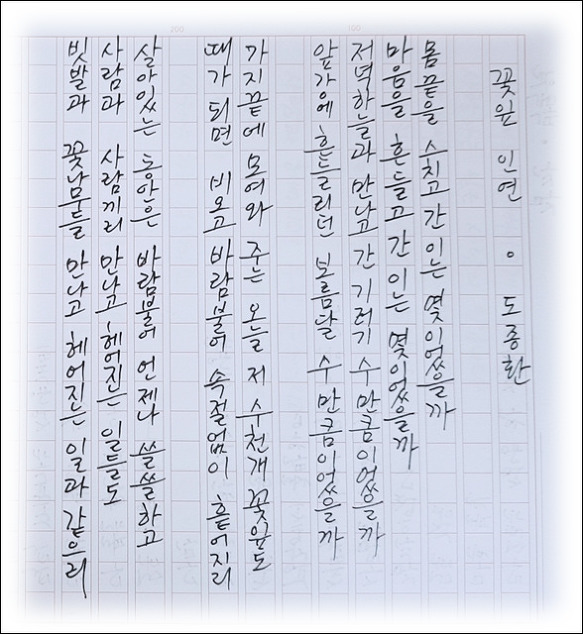 꽃잎 인연 · 도종환
몸 끝을 스치고 간 이는 몇이었을까
마음을 흔들고 간 이는 몇이었을까
저녁하늘과 만나고 간 기러기 수 만큼이었을까
앞강에 흔들리던 보름달 수 만큼이었을까
가지끝에 모여와 주는 오늘 저 수천개 꽃잎도
때가 되면 비오고 바람불어 속절없이 흩어지리
살아있는 동안은 바람불어 언제나 쓸쓸하고
사람과 사람끼리 만나고 헤어지는 일들도
빗발과 꽃나무들 만나고 헤어지는 일과 같으리